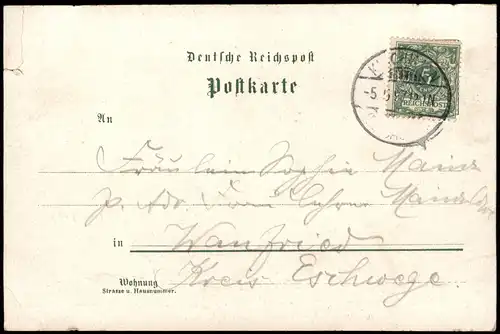 Deutsche Reichspost
Postkarte
5
REICHSPOST
-5.5
An
Fräulein Sophie
p. Adr. Frau Lehrer
in Wanfried
Wohnung
Strasse u. Hausnummer.
Kreis Eschwege